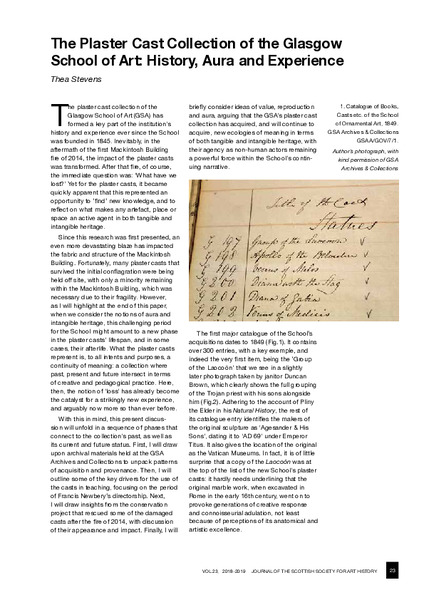 The Plaster Cast Collection of the Glasgow
School of Art: History, Aura and Experience
Thea Stevens
The plaster cast collection of the
Glasgow School of Art (GSA) has
formed a key part of the institution's
history and experience ever since the School
was founded in 1845. Inevitably, in the
aftermath of the first Mackintosh Building
fire of 2014, the impact of the plaster casts
was transformed. After that fire, of course,
the immediate question was: 'What have we
lost?' Yet for the plaster casts, it became
quickly apparent that this represented an
opportunity to 'find' new knowledge, and to
reflect on what makes any artefact, place or
space an active agent in both tangible and
intangible heritage.
Since this research was first presented, an
even more devastating blaze has impacted
the fabric and structure of the Mackintosh
Building. Fortunately, many plaster casts that
survived the initial conflagration were being
held off site, with only a minority remaining
within the Mackintosh Building, which was
necessary due to their fragility. However,
as I will highlight at the end of this paper,
when we consider the notions of aura and
intangible heritage, this challenging period
for the School might amount to a new phase
in the plaster casts' lifespan, and in some
cases, their afterlife. What the plaster casts
represent is, to all intents and purposes, a
continuity of meaning: a collection where
past, present and future intersect in terms
of creative and pedagogical practice. Here,
then, the notion of 'loss' has already become
the catalyst for a strikingly new experience,
and arguably now more so than ever before.
With this in mind, this present discus-
sion will unfold in a sequence of phases that
connect to the collection's past, as well as
its current and future status. First, I will draw
upon archival materials held at the GSA
Archives and Collections to unpack patterns
of acquisition and provenance. Then, I will
outline some of the key drivers for the use of
the casts in teaching, focusing on the period
of Francis Newbery's directorship. Next,
I will draw insights from the conservation
project that rescued some of the damaged
casts after the fire of 2014, with discussion
of their appearance and impact. Finally, I will
briefly consider ideas of value, reproduction
and aura, arguing that the GSA's plaster cast
collection has acquired, and will continue to
acquire, new ecologies of meaning in terms
of both tangible and intangible heritage, with
their agency as non-human actors remaining
a powerful force within the School's contin-
uing narrative.
1. Catalogue of Books,
Casts etc. of the School
of Ornamental Art, 1849.
GSA Archives & Collections
GSAA/GOV/7/1.
Author's photograph, with
kind permission of GSA
Archives & Collections
Statues
G 197 Group of the Laocoon
G 198 Apollo of the Belvedere
G 199 Venus of Milos
G 200 Diana with the Stag
G 201 Diana of Gabia
G 202 Venus of Medicis
The first major catalogue of the School's
acquisitions dates to 1849 (Fig. 1). It contains
over 300 entries, with a key exemple, and
indeed the very first item, being the 'Group
of the Laocoön' that we see in a slightly
later photograph taken by janitor Duncan
Brown, which clearly shows the full grouping
of the Trojan priest with his sons alongside
him (Fig.2). Adhering to the account of Pliny
the Elder in his Natural History, the rest of
its catalogue entry identifies the makers of
the original sculpture as 'Agesander & His
Sons', dating it to 'AD 69' under Emperor
Titus. It also gives the location of the original
as the Vatican Museums. In fact, it is of little
surprise that a copy of the Laocoön was at
the top of the list of the new School's plaster
casts: it hardly needs underlining that the
original marble work, when excavated in
Rome in the early 16th century, went on to
provoke generations of creative response
and connoisseurial adulation, not least
because of perceptions of its anatomical and
artistic excellence.
VOL 23, 2018-2019 JOURNAL OF THE SCOTTISH SOCIETY FOR ART HISTORY 23